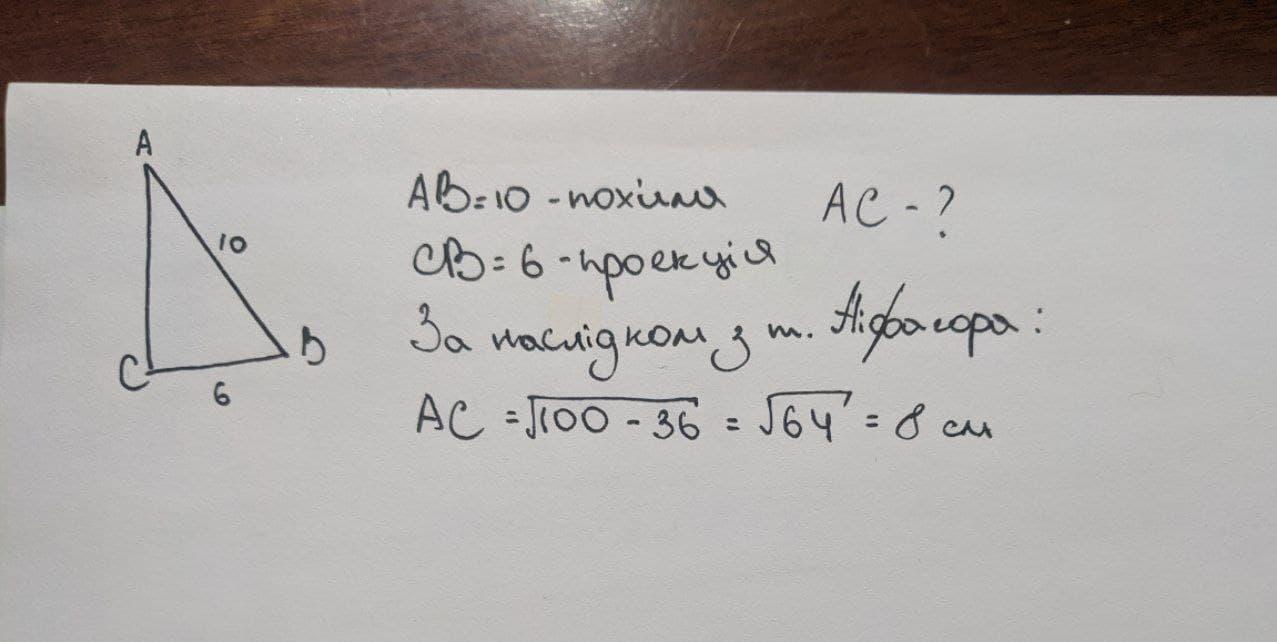 A
10
C
B
6
AB=10 - похила
AC - ?
CB = 6 - проекція
За наслідком з т. Піфагора:
AC = √100 - 36 = √64 = 8 см